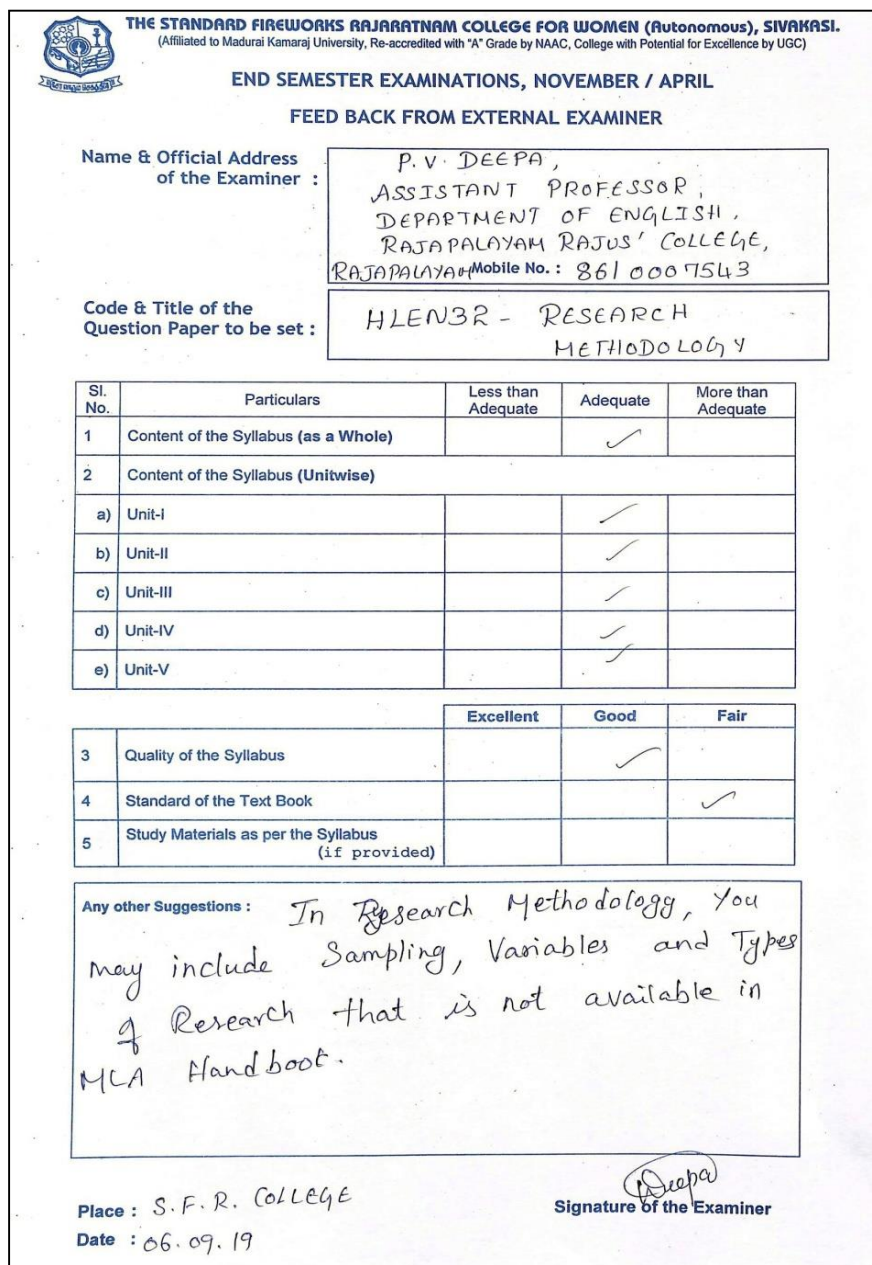 THE STANDARD FIREWORKS RAJARATNAM COLLEGE FOR WOMEN (Autonomous), SIVAKASI.
(Affiliated to Madurai Kamaraj University, Re-accredited with "A" Grade by NAAC, College with Potential for Excellence by UGC)
END SEMESTER EXAMINATIONS, NOVEMBER / APRIL
FEED BACK FROM EXTERNAL EXAMINER
Name & Official Address
of the Examiner :
P. V. DEEPA,
ASSISTANT PROFESSOR,
DEPARTMENT OF ENGLISH,
RAJAPALAYAM RAJUS' COLLEGE,
RAJAPALAYAM Mobile No. : 8610007543
Code & Title of the
Question Paper to be set :
HLEN32 - RESEARCH
METHODOLOGY
Sl. No. Particulars Less than Adequate Adequate More than Adequate
1 Content of the Syllabus (as a Whole) ✓
2 Content of the Syllabus (Unitwise)
a) Unit-I ✓
b) Unit-II ✓
c) Unit-III ✓
d) Unit-IV ✓
e) Unit-V ✓
Excellent Good Fair
3 Quality of the Syllabus ✓
4 Standard of the Text Book ✓
5 Study Materials as per the Syllabus
(if provided)
Any other Suggestions : In Research Methodology, You
may include Sampling, Variables and Types
of Research that is not available in
MLA Handbook.
Deepa
Place : S.F.R. COLLEGE
Signature of the Examiner
Date : 06.09.19